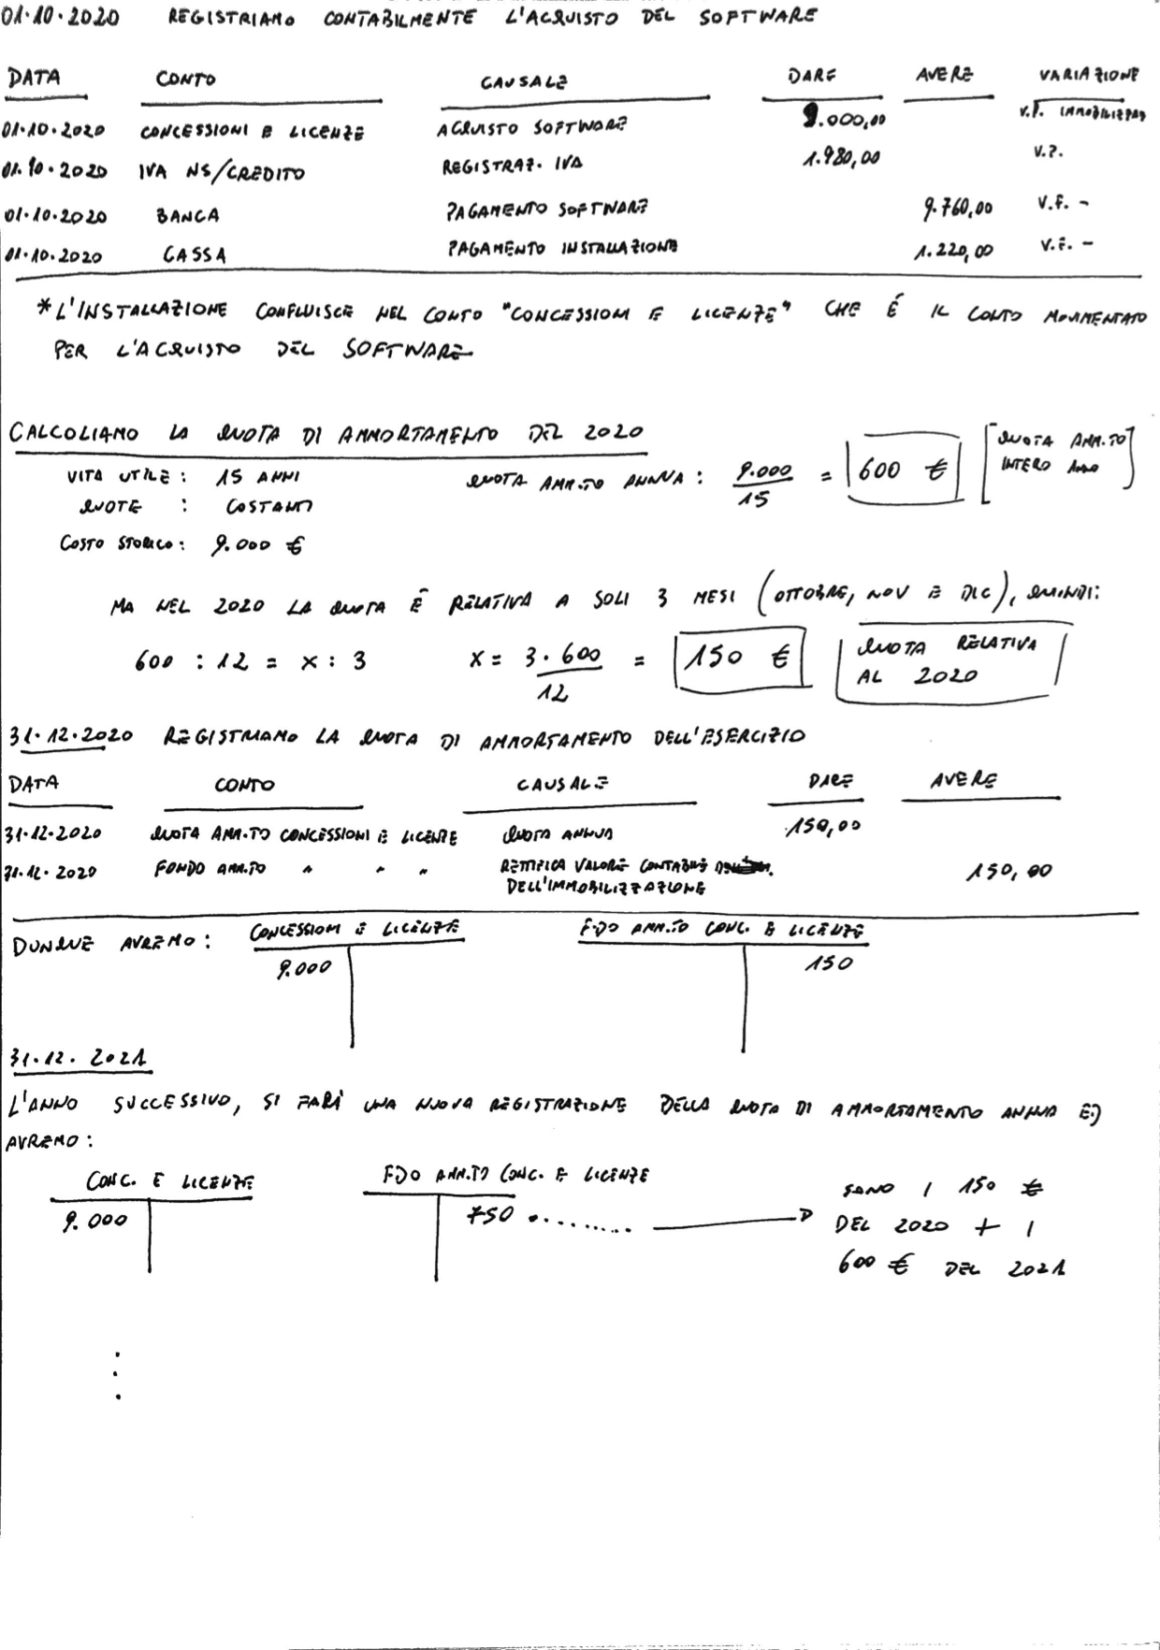 01.10.2020 REGISTRIAMO CONTABILMENTE L'ACQUISTO DEL SOFTWARE
DATA CONTO CAUSALE DARE AVERE VARIAZIONE
01.10.2020 CONCESSIONI E LICENZE ACQUISTO SOFTWARE 9.000,00 V.P. IMMOBILIZZAZ
01.10.2020 IVA NS/CREDITO REGISTRAZ. IVA 1.980,00 V.P.
01.10.2020 BANCA PAGAMENTO SOFTWARE 9.760,00 V.F. -
01.10.2020 CASSA PAGAMENTO INSTALLAZIONE 1.220,00 V.F. -
*L'INSTALLAZIONE CONFLUISCE NEL CONTO "CONCESSIONI E LICENZE" CHE É IL CONTO MOVIMENTATO
PER L'ACQUISTO DEL SOFTWARE
CALCOLIAMO LA QUOTA DI AMMORTAMENTO DEL 2020
VITA UTILE: 15 ANNI QUOTA AMM.TO ANNUA: 9.000 / 15 = 600 € [QUOTA AMM.TO
INTERO ANNO]
QUOTE : COSTANTI
COSTO STORICO: 9.000 €
MA NEL 2020 LA QUOTA È RELATIVA A SOLI 3 MESI (OTTOBRE, NOV E DIC), QUINDI:
600 : 12 = X : 3 X = 3 · 600 / 12 = 150 € QUOTA RELATIVA
AL 2020
31.12.2020 REGISTRIAMO LA QUOTA DI AMMORTAMENTO DELL'ESERCIZIO
DATA CONTO CAUSALE DARE AVERE
31.12.2020 QUOTA AMM.TO CONCESSIONI E LICENZE QUOTA ANNUA 150,00
31.12.2020 FONDO AMM.TO " " " RETTIFICA VALORE CONTABILE
DELL'IMMOBILIZZAZIONE 150,00
DUNQUE AVREMO: CONCESSIONI E LICENZE F.DO AMM.TO CONC. E LICENZE
9.000 150
31.12.2021
L'ANNO SUCCESSIVO, SI FARÀ UNA NUOVA REGISTRAZIONE DELLA QUOTA DI AMMORTAMENTO ANNUA ED
AVREMO:
CONC. E LICENZE FDO AMM.TO CONC. E LICENZE
9.000 750 SONO I 150 €
DEL 2020 + I
600 € DEL 2021